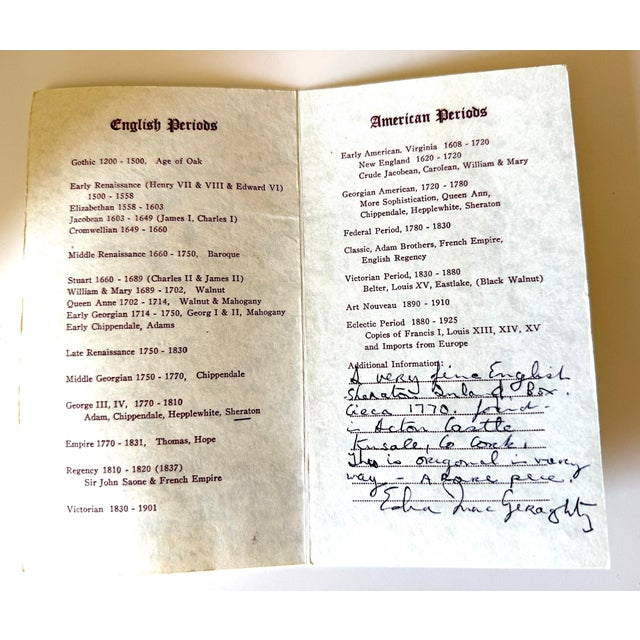 English Periods
Gothic 1200 - 1500, Age of Oak
Early Renaissance (Henry VII & VIII & Edward VI)
1500 - 1558
Elizabethan 1558 - 1603
Jacobean 1603 - 1649 (James I, Charles I)
Cromwellian 1649 - 1660
Middle Renaissance 1660 - 1750, Baroque
Stuart 1660 - 1689 (Charles II & James II)
William & Mary 1689 - 1702, Walnut
Queen Anne 1702 - 1714, Walnut & Mahogany
Early Georgian 1714 - 1750, Georg I & II, Mahogany
Early Chippendale, Adams
Late Renaissance 1750 - 1830
Middle Georgian 1750 - 1770, Chippendale
George III, IV, 1770 - 1810
Adam, Chippendale, Hepplewhite, Sheraton
Empire 1770 - 1831, Thomas, Hope
Regency 1810 - 1820 (1837)
Sir John Saone & French Empire
Victorian 1830 - 1901
American Periods
Early American. Virginia 1608 - 1720
New England 1620 - 1720
Crude Jacobean, Carolean, William & Mary
Georgian American, 1720 - 1780
More Sophistication, Queen Ann,
Chippendale, Hepplewhite, Sheraton
Federal Period, 1780 - 1830
Classic, Adam Brothers, French Empire,
English Regency
Victorian Period, 1830 - 1880
Belter, Louis XV, Eastlake, (Black Walnut)
Art Nouveau 1890 - 1910
Eclectic Period 1880 - 1925
Copies of Francis I, Louis XIII, XIV, XV
and Imports from Europe
Additional Information:
A very fine English
Sheraton Inlaid Box.
Circa 1770. found
in Acton Castle
Kinsale, Co Cork.
This is original in every
way - A Rare piece.
Edna MacGeraghty